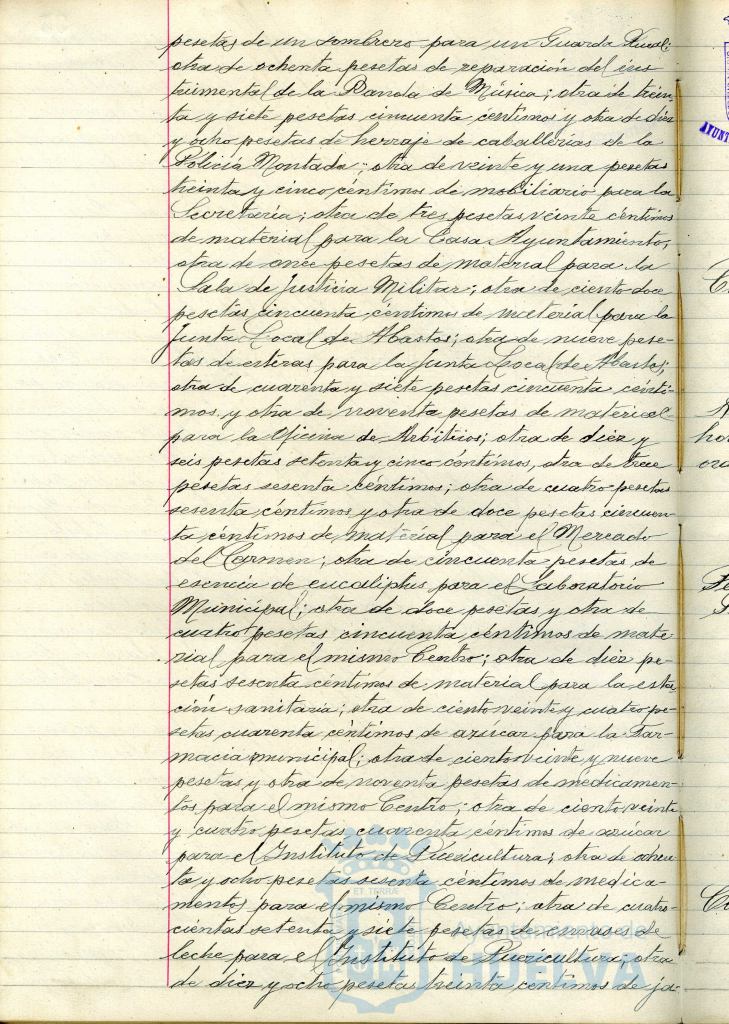 pesetas de un sombrero para un Guarda Rural;
otra de ochenta pesetas de reparación del ins
trumental de la Banda de Música; otra de trein-
ta y siete pesetas cincuenta céntimos y otra de diez
y ocho pesetas de herraje de caballerías de la
Policía Montada; otra de veinte y una pesetas
treinta y cinco céntimos de mobiliario para la
Secretaría; otra de tres pesetas veinte céntimos
de material para la Casa Ayuntamiento,
otra de once pesetas de material para la
Sala de Justicia Militar; otra de ciento doce
pesetas cincuenta céntimos de material para la
Junta Local de Abastos; otra de nueve pese-
tas de esteras para la Junta Local de Abastos;
otra de cuarenta y siete pesetas cincuenta cénti-
mos, y otra de noventa pesetas de material
para la Oficina de Arbitrios; otra de diez y
seis pesetas setenta y cinco céntimos, otra de trece
pesetas sesenta céntimos; otra de cuatro pesetas
sesenta céntimos y otra de doce pesetas cincuen-
ta céntimos de material para el Mercado
del Carmen; otra de cincuenta pesetas de
esencia de eucaliptus para el Laboratorio
Municipal; otra de doce pesetas y otra de
cuatro pesetas cincuenta céntimos de mate-
rial para el mismo Centro; otra de diez pe-
setas sesenta céntimos de material para la esta
ción sanitaria; otra de ciento veinte y cuatro pe-
setas cuarenta céntimos de azúcar para la Far-
macia municipal; otra de ciento veinte y nueve
pesetas y otra de noventa pesetas de medicamen-
tos para el mismo Centro; otra de ciento veinte
y cuatro pesetas cuarenta céntimos de azúcar
para el Instituto de Puericultura; otra de ochen-
ta y ocho pesetas sesenta céntimos de medica-
mentos para el mismo Centro; otra de cuatro-
cientas setenta y siete pesetas de envases de
leche para el Instituto de Puericultura; otra
de diez y ocho pesetas treinta céntimos de ja-
ET TERRÆ
Ayuntamiento de
HUELVA